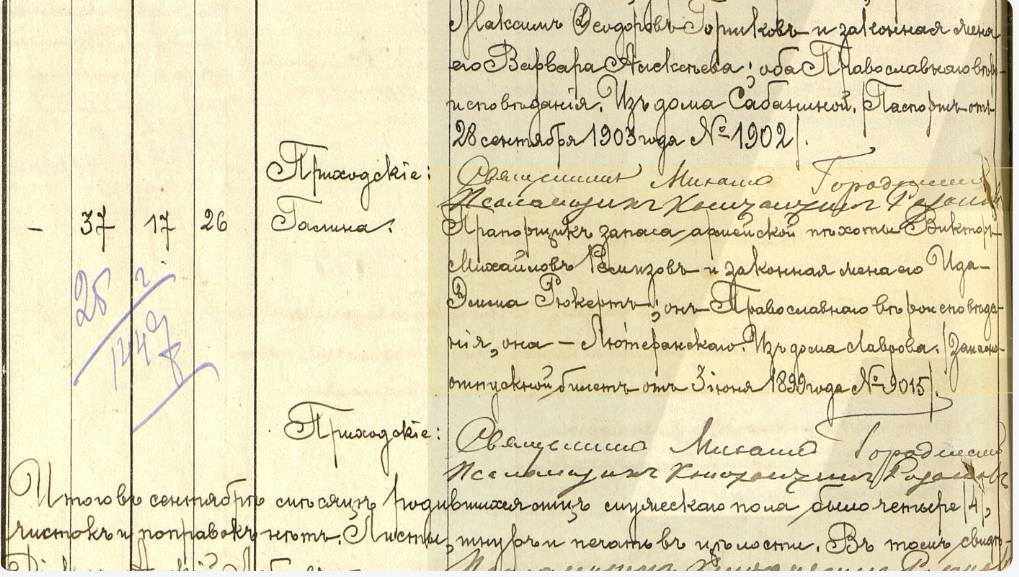 Максимъ Ѳеодоровъ Горшковъ и законная жена
его Варвара Алексѣева; оба Православнаго вѣро-
исповѣданія. Изъ дома Сабаниной. /Паспортъ отъ
28 сентября 1903 года № 1902/.
Приходскіе:
Священникъ Михаилъ Городецкій
Псаломщикъ Константинъ
– 37 17 26 Галина.
Прапорщикъ запаса армейской пѣхоты Викторъ
Михайловъ Ремизовъ и законная жена его Ида-
Эмма Рюкертъ; онъ Православнаго вѣроисповѣда-
нія, она – Лютеранскаго. Изъ дома Лаврова. /Запасно-
отпускной билетъ отъ 3 іюня 1899 года № 9015/.
Приходскіе:
Священникъ Михаилъ Городецкій
Псаломщикъ Константинъ
Итого въ сентябрѣ мѣсяцѣ родившихся мужескаго пола было четыре /4/,
чистокъ и поправокъ нѣтъ. Листы, шнуръ и печать въ цѣлости. Въ томъ свидѣ-